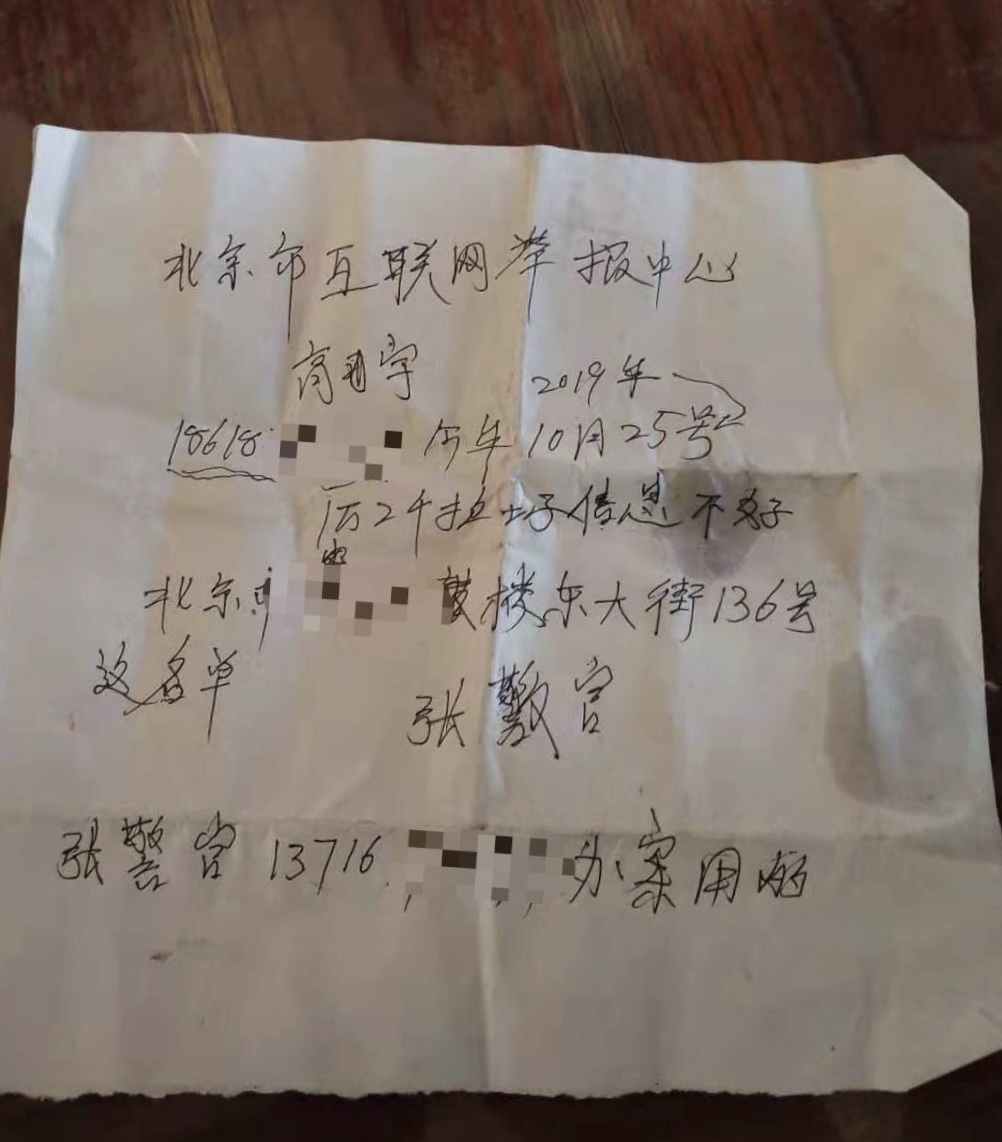 北京市互联网举报中心
高 宇 2019年
18618 今年10月25号
后2个 信息不好
北京市 鼓楼东大街136号
这名单 张警官
张警官 13716 办案用的